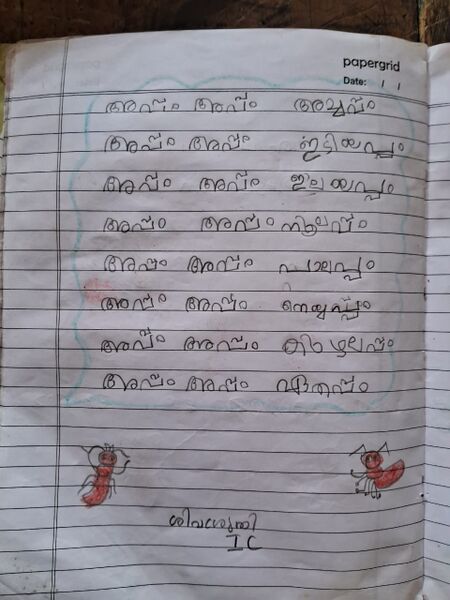 papergrid
Date: / /
അപ്പം അപ്പം അച്ചപ്പം
അപ്പം അപ്പം ഇടിയപ്പം
അപ്പം അപ്പം ഇലയപ്പം
അപ്പം അപ്പം നൂലപ്പം
അപ്പം അപ്പം പാലപ്പം
അപ്പം അപ്പം നെയ്യപ്പം
അപ്പം അപ്പം കുഴലപ്പം
അപ്പം അപ്പം
I C